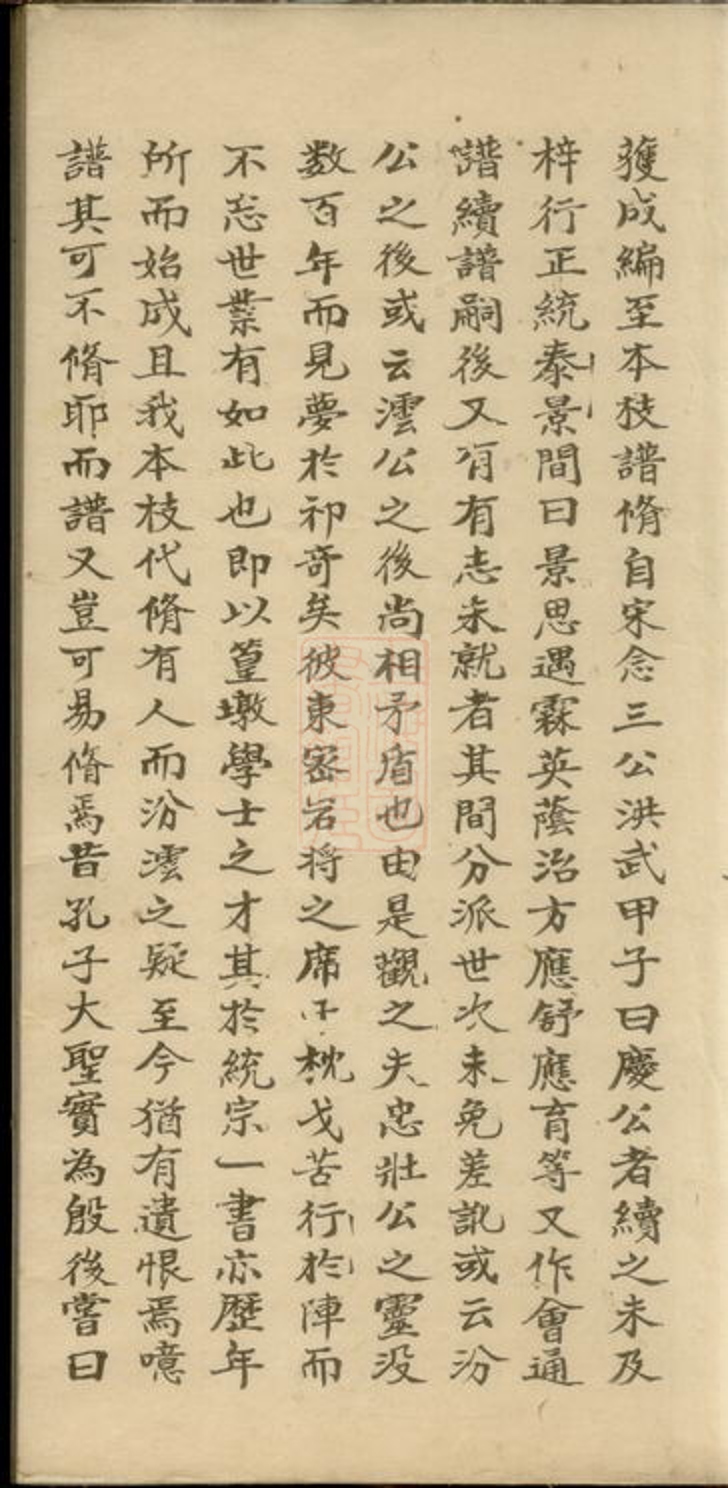 獲成編至本枝譜脩自宋念三公洪武甲子曰慶公者續之未及
梓行正統泰景間曰景思遇霖英蔭治方應舒應育等又作會通
譜續譜嗣後又有有志未就者其間分派世次未免差訛或云汾
公之後或云澐公之後尚相矛盾也由是觀之夫忠壯公之靈没
数百年而見夢於祁奇矣彼東密岩将之席枕戈苦行於陣而
不忘世業有如此也即以篁墩學士之才其於統宗一書亦歷年
所而始成且我本枝代脩有人而汾澐之疑至今猶有遺恨焉噫
譜其可不脩耶而譜又豈可易脩焉昔孔子大聖實為殷後嘗曰